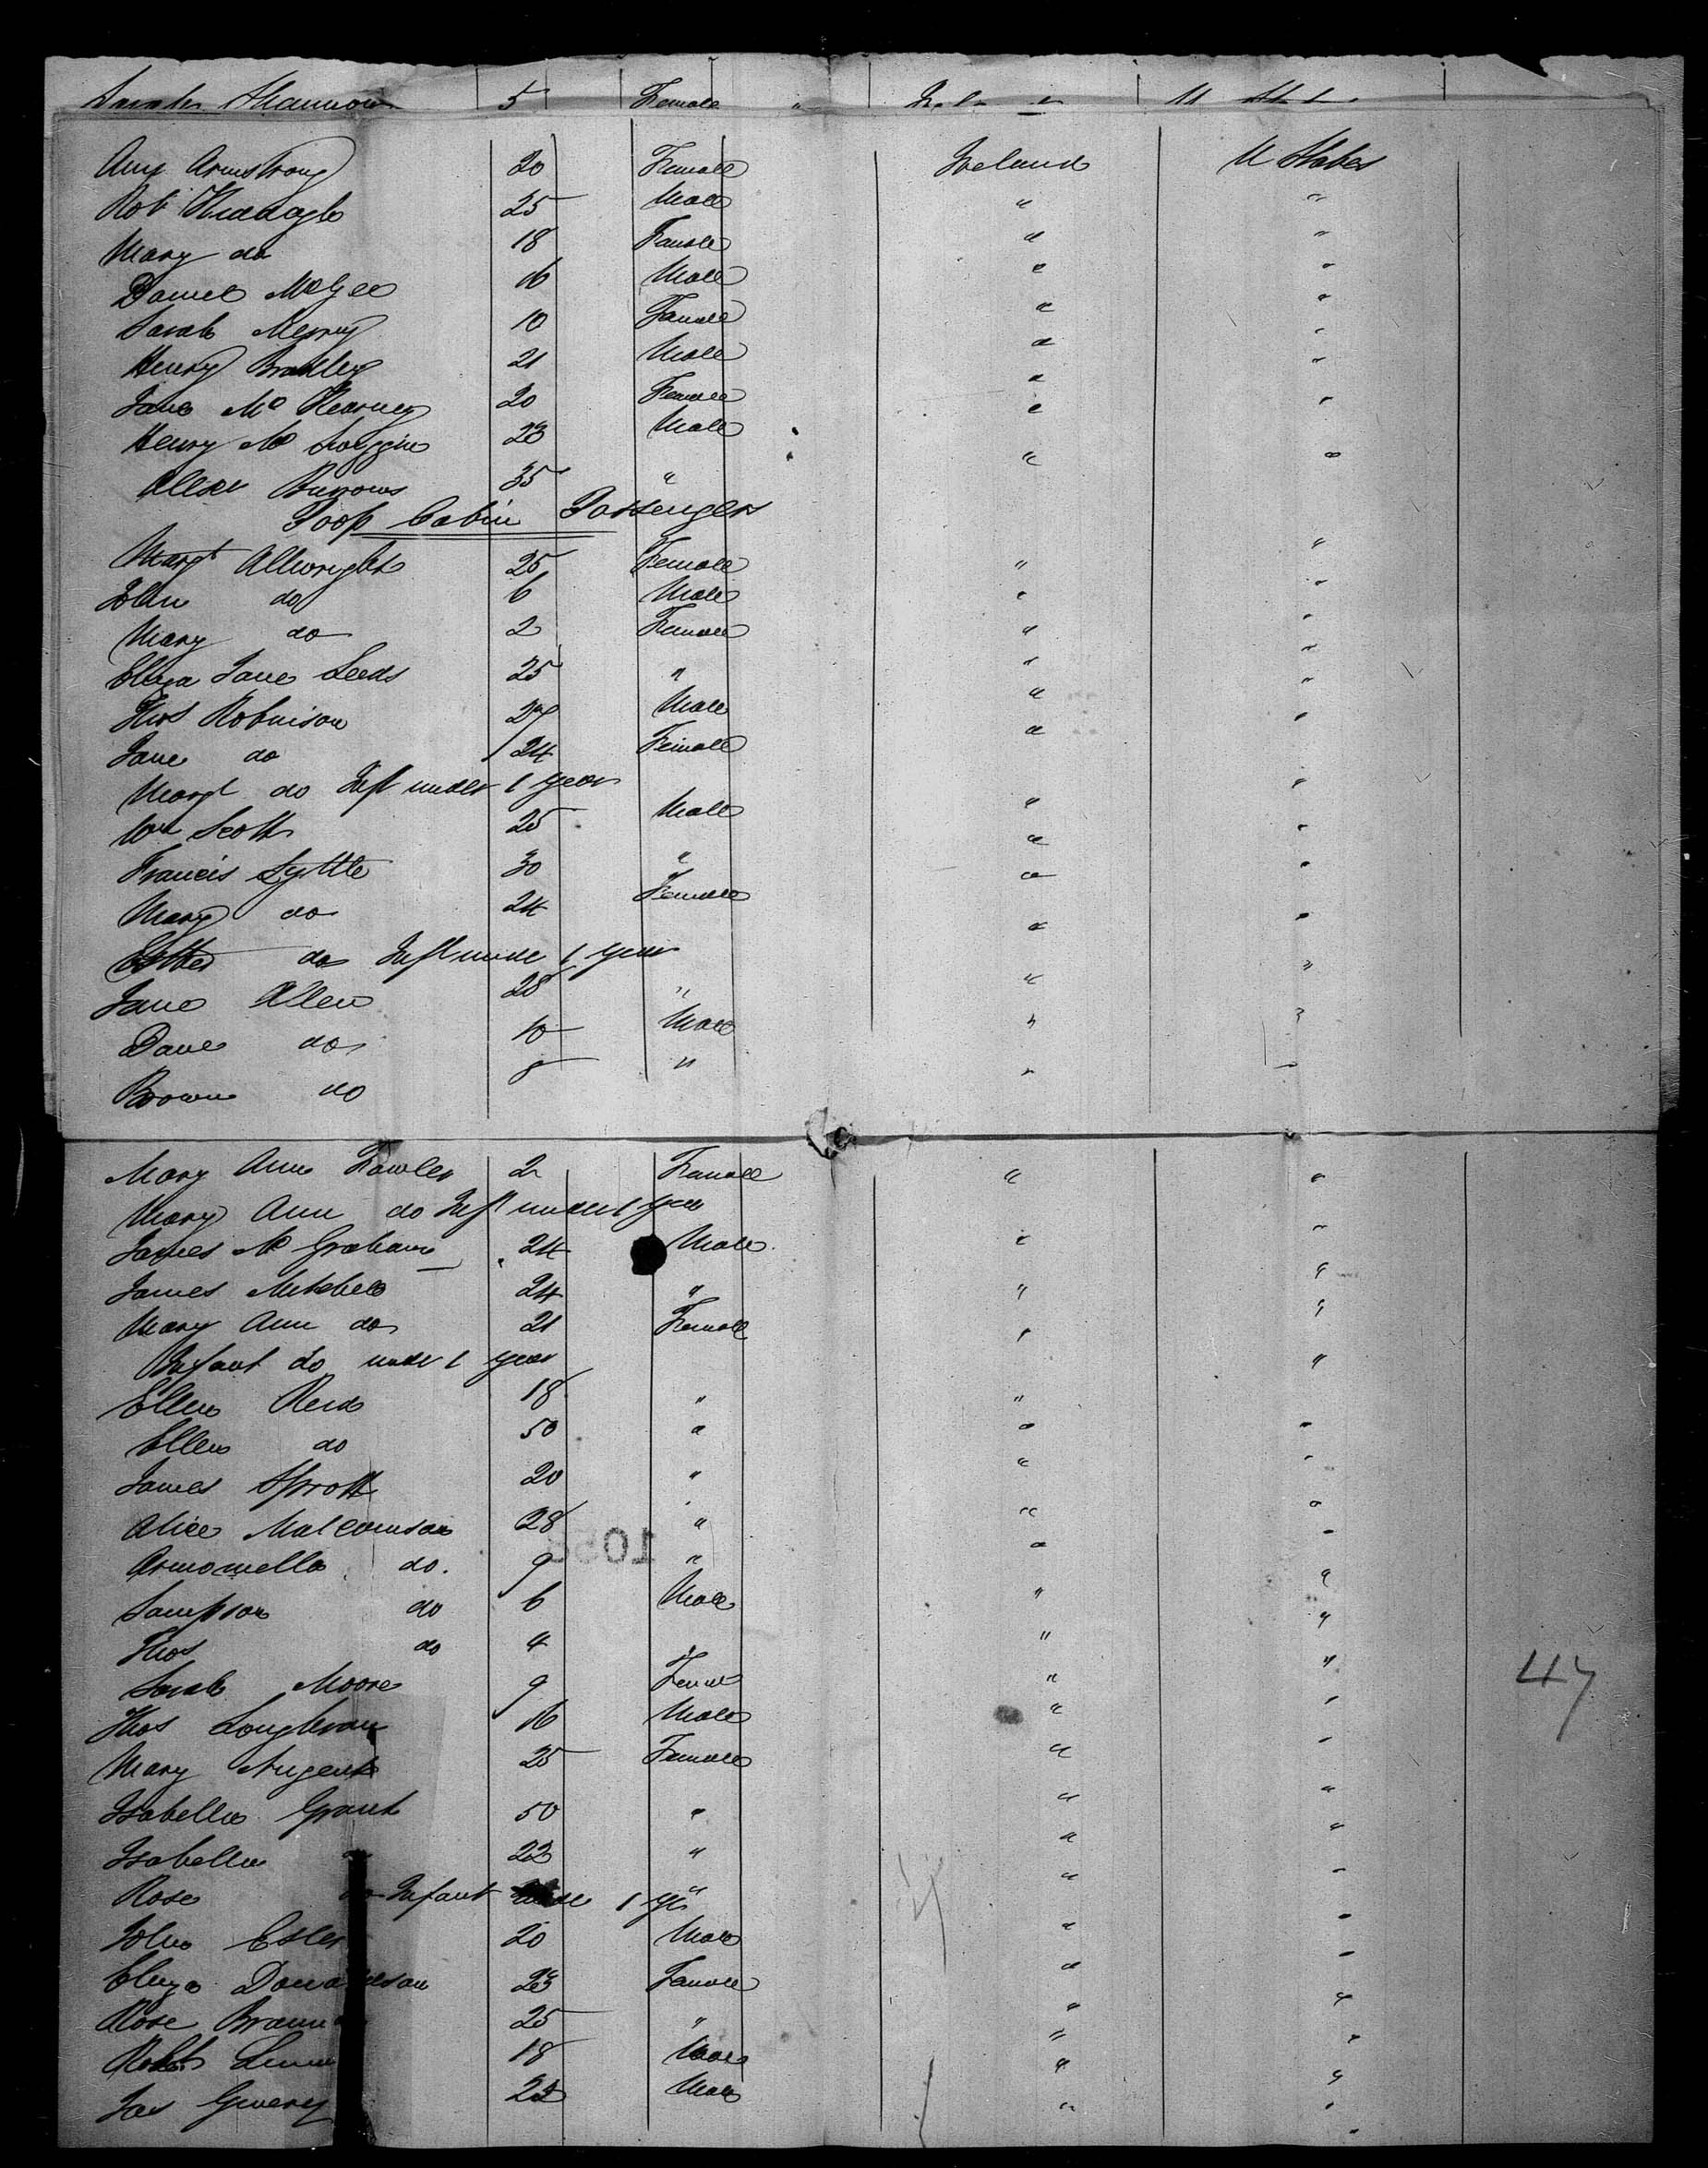 Sarah Shannon 5 Female " Ireland U States
Ann Armstrong 20 Female Ireland U States
Robt 25 Male " "
Mary do 18 Female " "
Daniel McGee 16 Male " "
Sarah Merry 10 Female " "
Henry Bradley 21 Male " "
Jane Mc Kearney 20 Female " "
Henry Mc 23 Male " "
Alexr Burrows 35 " " "
Poop Cabin Passengers
Margt Allwright 25 Female " "
John do 6 Male " "
Mary do 2 Female " "
Eliza Jane Leeds 25 " " "
Thos Robinson 27 Male " "
Jane do 24 Female " "
Margt do Inft under 1 year
Wm Scott 25 Male " "
Francis Lyttle 30 " " "
Mary do 24 Female " "
Esther do Inft under 1 year " "
Jane Allen 28 " " "
Dave do 10 Male " "
Brown do 8 " " "
Mary Ann Fowler 2 Female " "
Mary Ann do Inft under 1 year
James Mc Graham 24 Male " "
James Mitchell 24 " " "
Mary Ann do 21 Female " "
Infant do under 1 year "
Ellen Reid 18 " "
Ellen do 50 " " "
James Sprott 20 " " "
Alice Malcomson 28 " " "
do. 9 " " "
Sampson do 6 Male " "
Thos do 4 " " "
Sarah Moore 9 Femal " "
Thos Loughran 16 Male " "
Mary Nugent 25 Female " "
Isabella Grant 50 " " "
Isabella 22 " " "
Rose do Infant under 1 yr " " "
John Esler 20 Male " "
Eliza Donaldson 23 Female " "
Rose 25 " " "
Robt 18 Male " "
Jas 22 Male " "
47